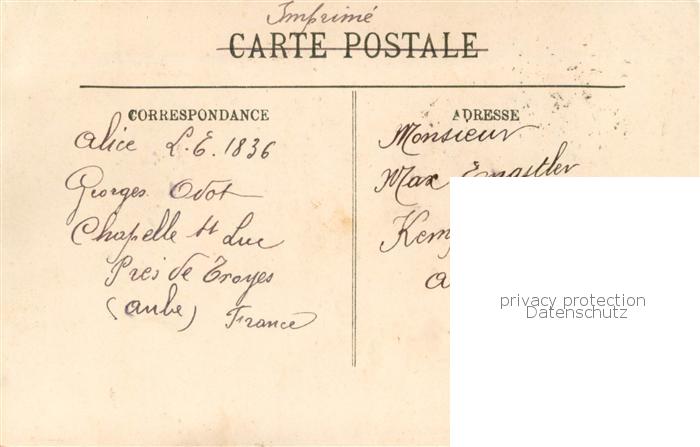 Imprimé
CARTE POSTALE
CORRESPONDANCE
Alice L.E. 1836
Georges Odot
Chapelle St Luc
Près de Troyes
(Aube) France
ADRESSE
Monsieur
Max
privacy protection
Datenschutz